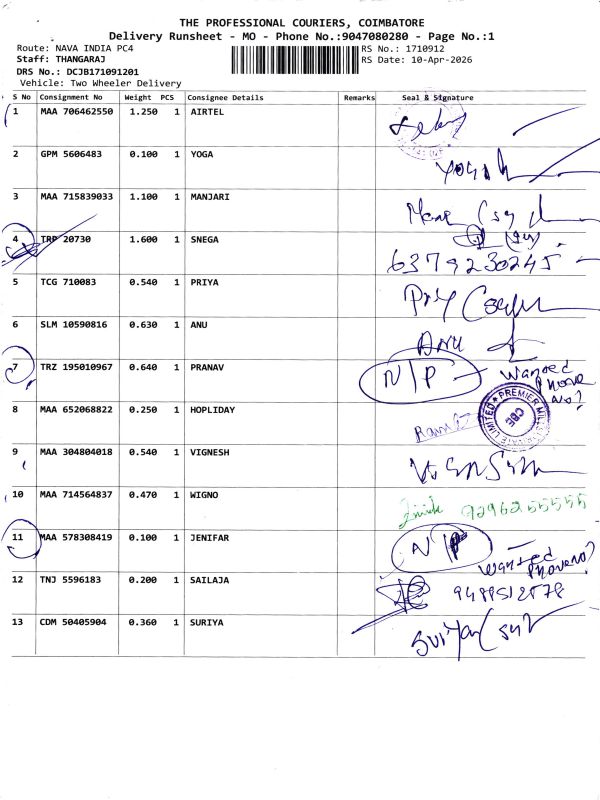 THE PROFESSIONAL COURIERS, COIMBATORE
Delivery Runsheet - MO - Phone No.:9047080280 - Page No.:1
Route: NAVA INDIA PC4
RS No.: 1710912
Staff: THANGARAJ
RS Date: 10-Apr-2026
DRS No.: DCJB171091201
Vehicle: Two Wheeler Delivery
S No Consignment No Weight PCS Consignee Details Remarks Seal & Signature
1 MAA 706462550 1.250 1 AIRTEL
2 GPM 5606483 0.100 1 YOGA
3 MAA 715839033 1.100 1 MANJARI
4 TRP 20730 1.600 1 SNEGA
6379230245
5 TCG 710083 0.540 1 PRIYA
6 SLM 10590816 0.630 1 ANU Anu
7 TRZ 195010967 0.640 1 PRANAV N/P - Wanted Phone No?
8 MAA 652068822 0.250 1 HOPLIDAY
PREMIER MILLS PRIVATE LIMITED CBE
9 MAA 304804018 0.540 1 VIGNESH
10 MAA 714564837 0.470 1 WIGNO 9296255555
11 MAA 578308419 0.100 1 JENIFAR N/P - Wanted Phone no?
12 TNJ 5596183 0.200 1 SAILAJA
13 CDM 50405904 0.360 1 SURIYA